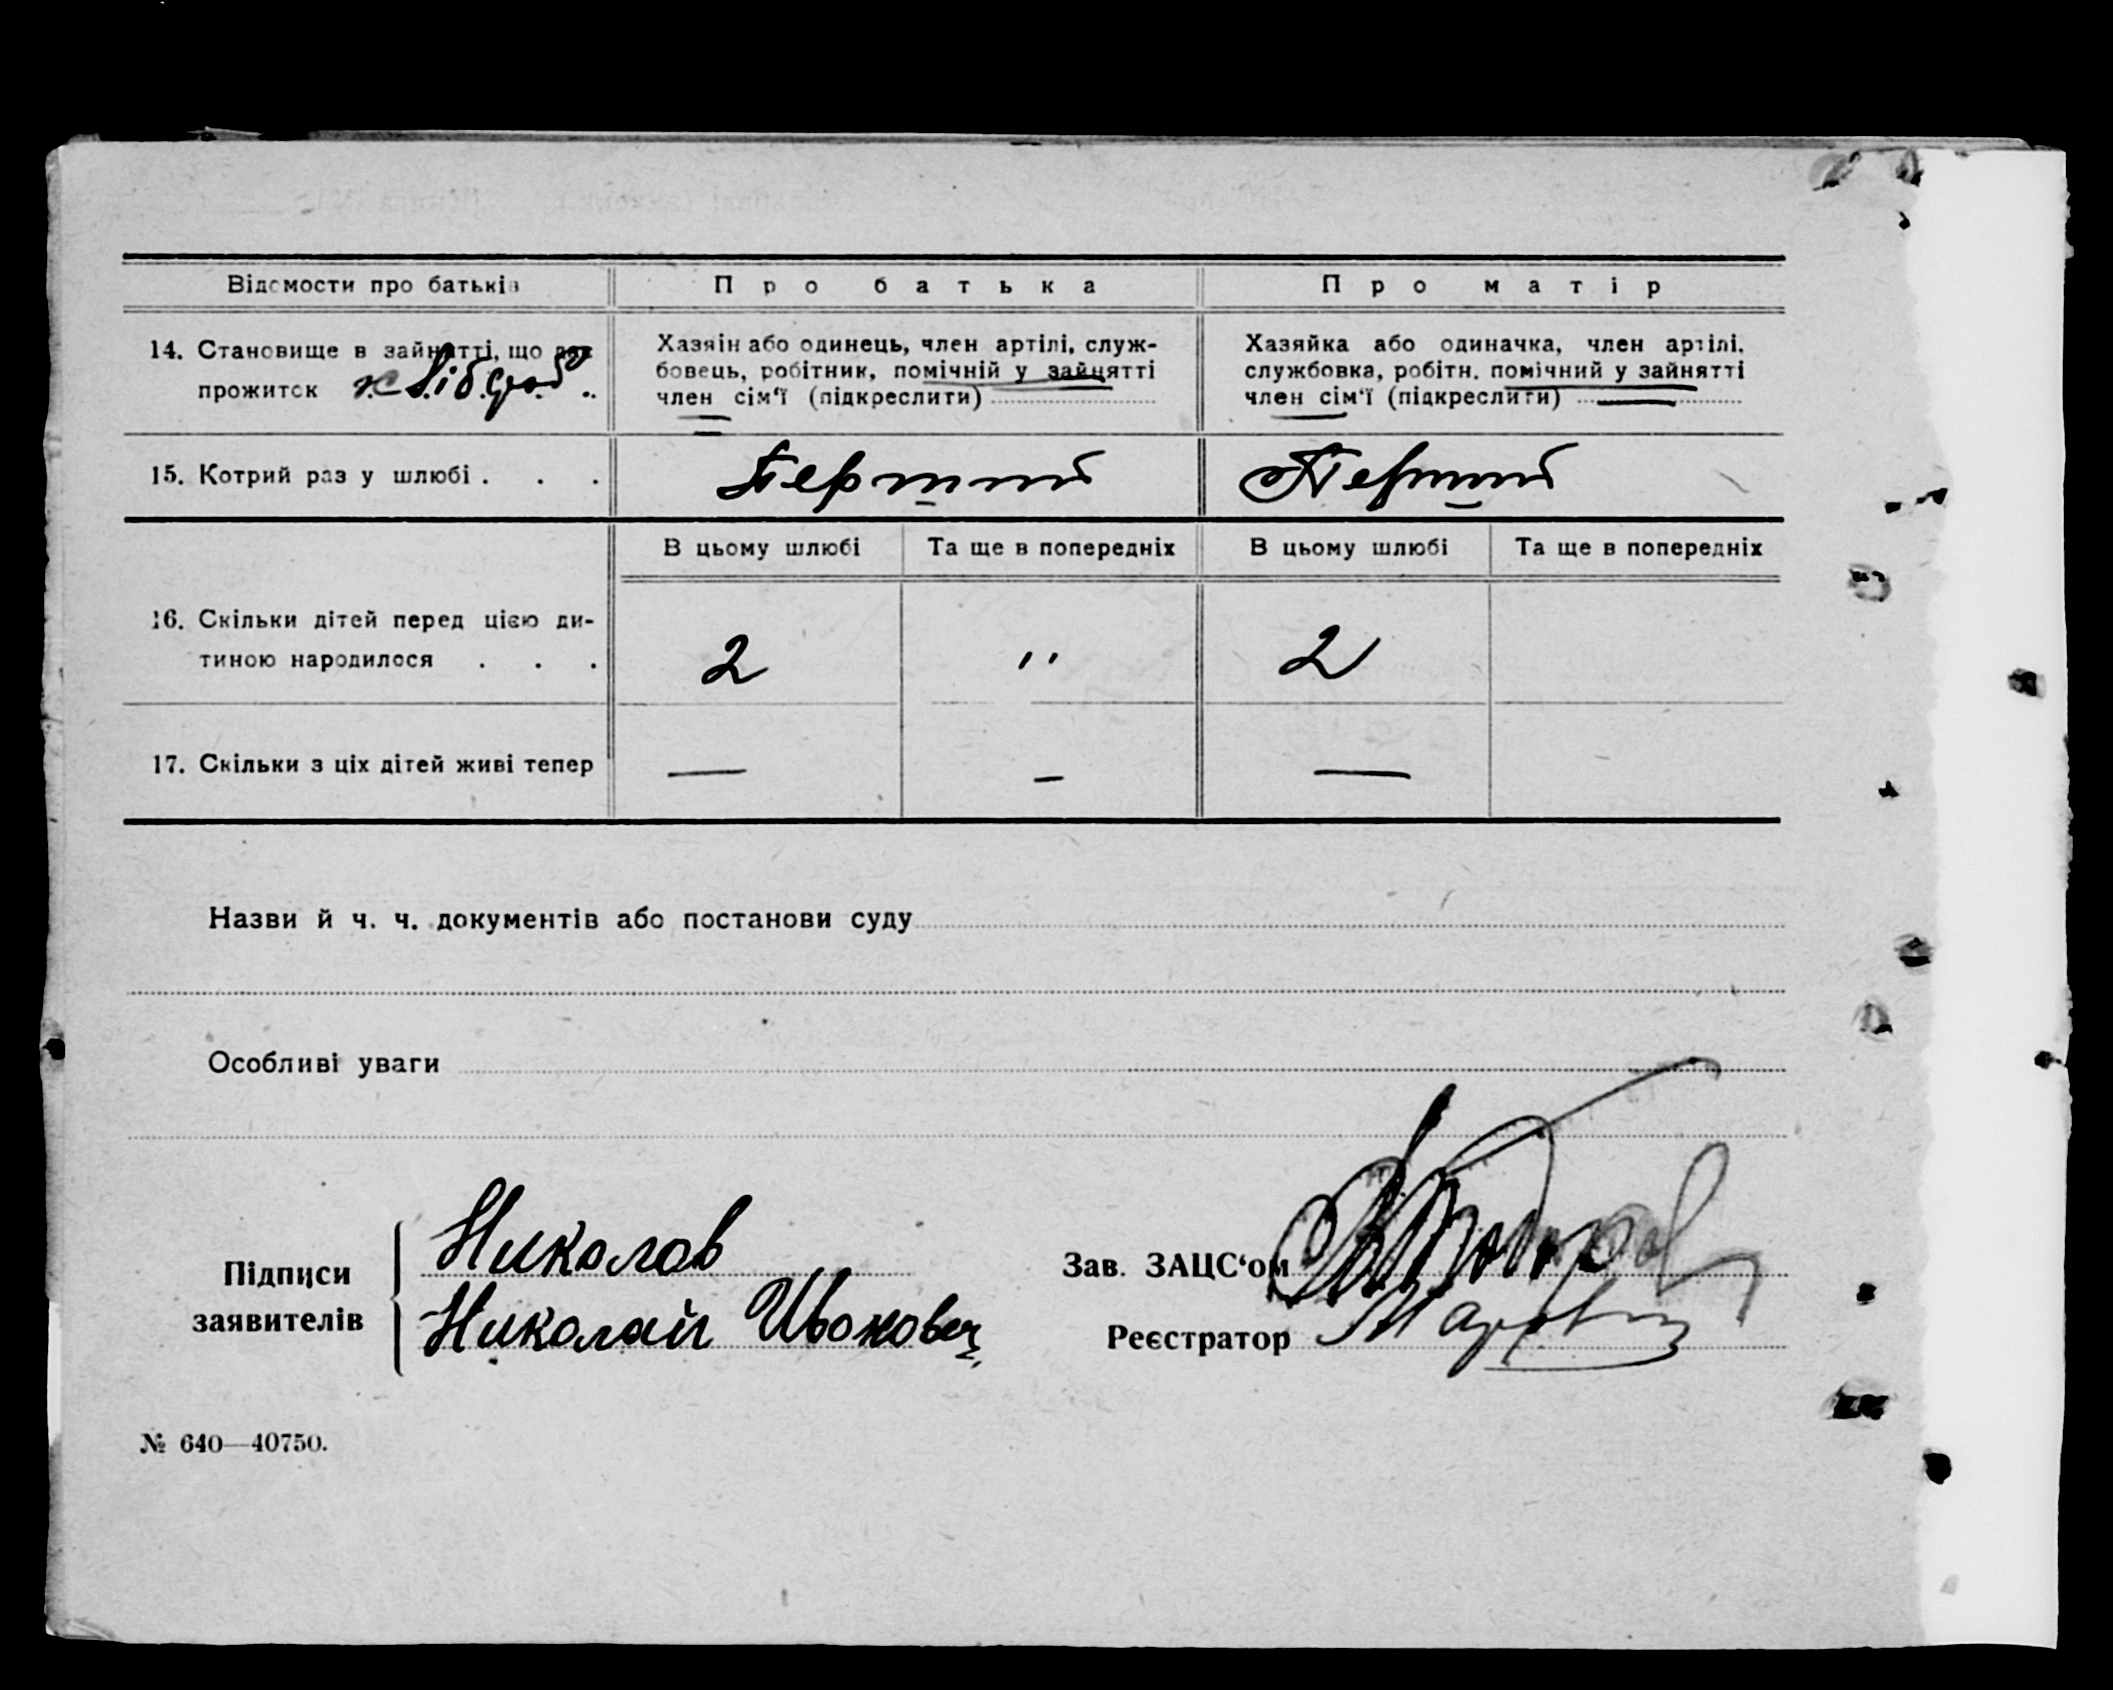 Відомости про батьків
Про батька
Про матір
14. Становище в зайнятті, що дає
прожиток
Хазяїн або одинець, член артілі, служ-
бовець, робітник, помічній у зайнятті
член сім'ї (підкреслити)
Хазяйка або одиначка, член артілі,
службовка, робітн. помічний у зайнятті
член сім'ї (підкреслити)
15. Котрий раз у шлюбі . . .
Перший
Перший
В цьому шлюбі
Та ще в попередніх
В цьому шлюбі
Та ще в попередніх
16. Скільки дітей перед цією ди-
тиною народилося . . .
2
"
2
17. Скільки з ціх дітей живі тепер
—
—
—
Назви й ч. ч. документів або постанови суду
Особливі уваги
Підписи
заявителів
Николов
Николай
Зав. ЗАЦС'ом
Реєстратор
№ 640—40750.